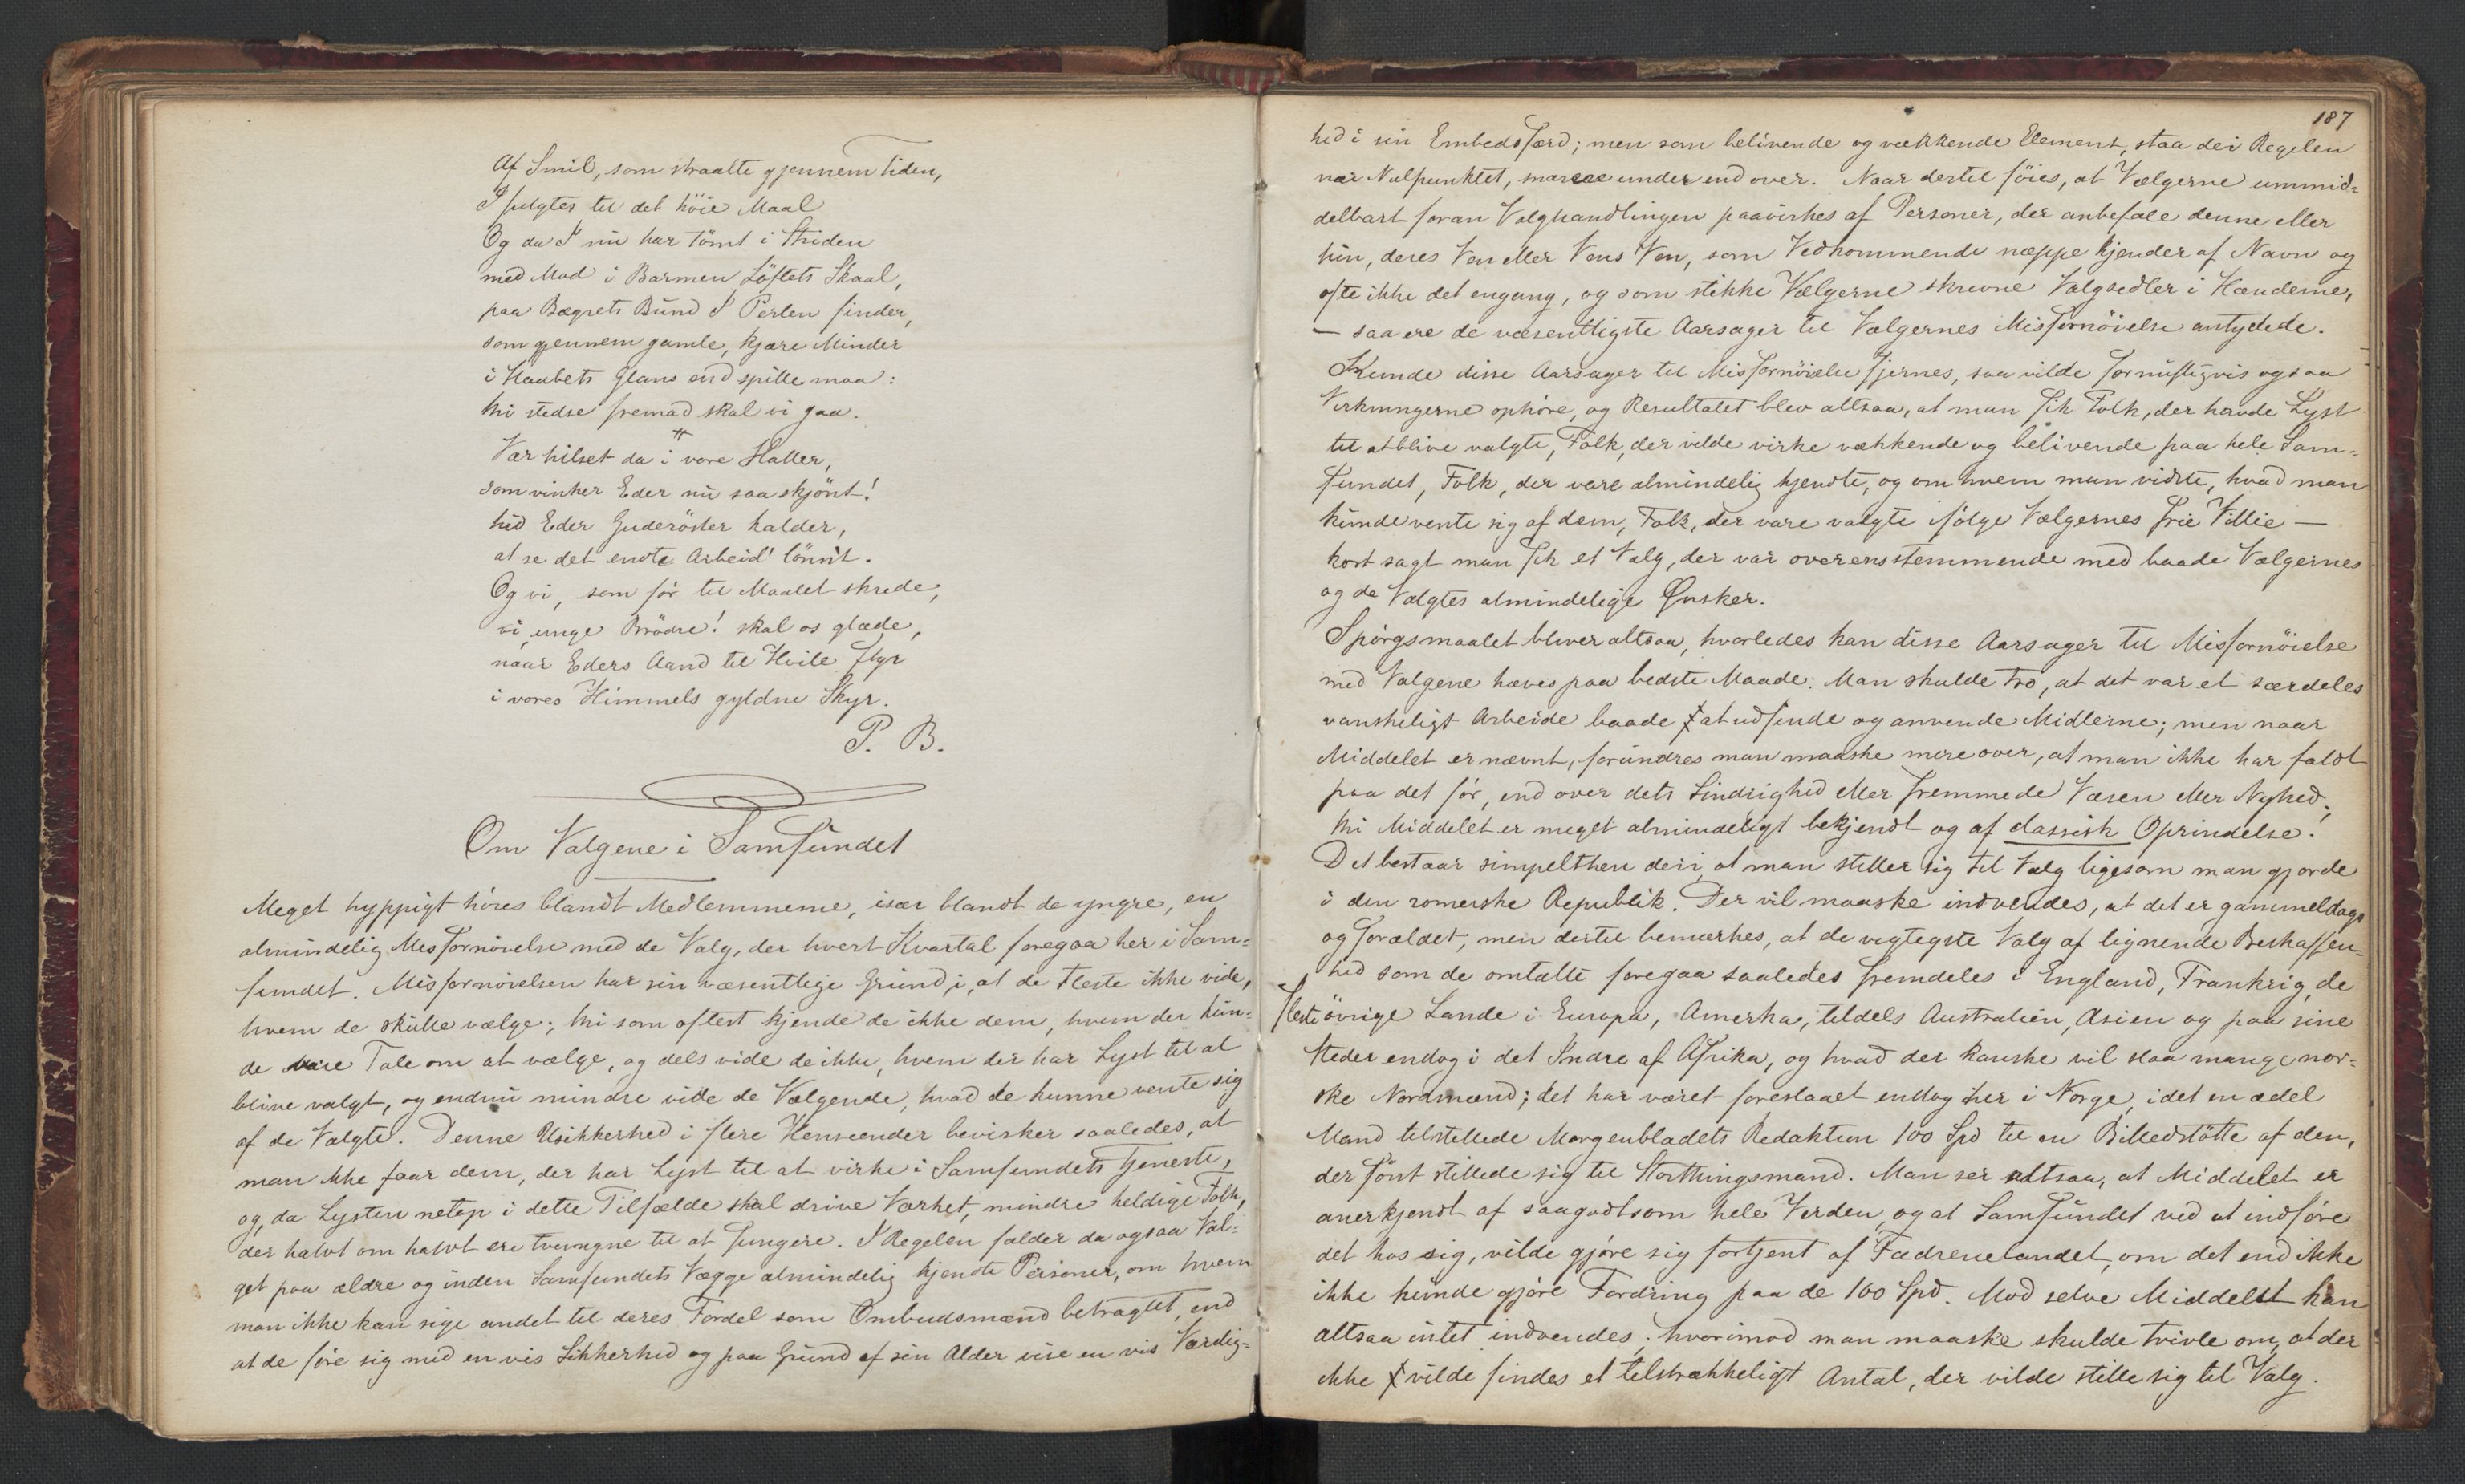 Af Smil, som straalte gjennem Tiden,
I fulgtes til det höie Maal
Og da I nu har tömt i Striden
med Mod i Barmen Löftets Skaal,
paa Bægrets Bund I Perlen finder,
som gjennem gamle, kjære Minder
i Haabets Glans end spille maa:
thi stedse fremad skal vi gaa.
Vær hilset da i vore Haller,
som vinker Eder nu saa skjönt!
hid Eder Guderöster kalder,
at se det endte Arbeid' lönnt.
Og vi, som før til Maalet skrede,
vi unge Brödre! skal os glæde,
naar Eders Aand til Hvile flyr
i vores Himmels gyldne Skyr.
P. B.
Om Valgene i Samfundet
Meget hyppigt höres blandt Medlemmerne, især blandt de yngre, en
almindelig Misfornöielse med de Valg, der hvert Kvartal foregaa her i Sam=
fundet. Misfornöielsen har sin væsentlige Grund i, at de fleste ikke vide,
hvem de skulle vælge; thi som oftest kjende de ikke dem, hvem der kun=
de være Tale om at vælge, og dels vide de ikke, hvem der har Lyst til at
blive valgt, og endnu mindre vide de Vælgende, hvad de kunne vente sig
af de Valgte. Denne Usikkerhed i flere Henseender bevirker saaledes, at
man ikke faar dem, der har Lyst til at virke i Samfundets Tjeneste,
og, da Lysten netop i dette Tilfælde skal drive Værket, mindre heldige Folk,
der halvt om halvt ere tvungne til at fungere. I Regelen falder da ogsaa Val=
get paa ældre og inden Samfundets Vægge almindelig kjendte Personer, om hvem
man ikke kan sige andet til deres Fordel som Ombudsmænd betragtet, end
at de före sig med en vis Sikkerhed og paa Grund af sin Alder vise en vis Værdig=
187
hed i sin Embedsfærd; men som belivende og vækkende Element, staa de i Regelen
nær Nulpunktet, snarere under end over. Naar dertil föies, at Vælgerne ummid=
delbart foran Valghandlingen paavirkes af Personer, der anbefale denne eller
hin, deres Ven eller Vens Ven, som Vedkommende næppe kjender af Navn og
ofte ikke det engang, og som stikke Vælgerne skrevne Valgsedler i Hænderne,
— saa ere de væsentligste Aarsager til Vælgernes Misfornöielse antydede.
Kunde disse Aarsager til Misfornöielse fjernes, saa vilde fornuftigvis ogsaa
Virkningerne ophöre, og Resultatet blev altsaa, at man fik Folk, der havde Lyst
til at blive valgte, Folk, der vilde virke vækkende og belivende paa hele Sam=
fundet, Folk, der vare almindelig kjendte, og om hvem man vidste, hvad man
kunde vente sig af dem, Folk, der vare valgte ifölge Vælgernes frie Villie —
kort sagt man fik et Valg, der var overensstemmende med baade Vælgernes
og de Valgtes almindelige Ønsker.
Spörgsmaalet bliver altsaa, hvorledes kan disse Aarsager til Misfornöielse
med Valgene hæves paa bedste Maade. Man skulde tro, at det var et særdeles
vanskeligt Arbeide baade at udfinde og anvende Midlerne; men naar
Middelet er nævnt, forundres man maaske mere over, at man ikke har faldt
paa det før, end over dets Sindrighed eller fremmede Væsen eller Nyhed;
thi Middelet er meget almindeligt bekjendt og af classisk Oprindelse.
Det bestaar simpelthen deri, at man stiller sig til Valg ligesom man gjorde
i den romerske Republik. Der vil maaske indvendes, at det er gammeldags
og forældet, men dertil bemærkes, at de vigtigste Valg af lignende Beskaffen=
hed som de omtalte foregaa saaledes fremdeles i England, Frankrig, de
fleste övrige Lande i Europa, Amerka, tildels Australien, Asien og paa sine
Steder endog i det Indre af Afrika, og hvad der kanske vil slaa mange nor=
ske Nordmænd; det har været foreslaaet endog her i Norge, idet en ædel
Mand tilstillede Morgenbladets Redaktion 100 Spd til en Billedstötte af den,
der först stillede sig til Storthingsmand. Man ser altsaa, at Middelet er
anerkjendt af saagodtsom hele Verden, og at Samfundet ved at indföre
det hos sig, vilde gjöre sig fortjent af Fædrenelandet, om det end ikke
ikke kunde gjöre Fordring paa de 100 Spd. Mod selve Middelet kan
altsaa intet indvendes; hvorimod man maaske skulde tvivle om, at der
ikke vilde findes et tilstrækkeligt Antal, der vilde stille sig til Valg.